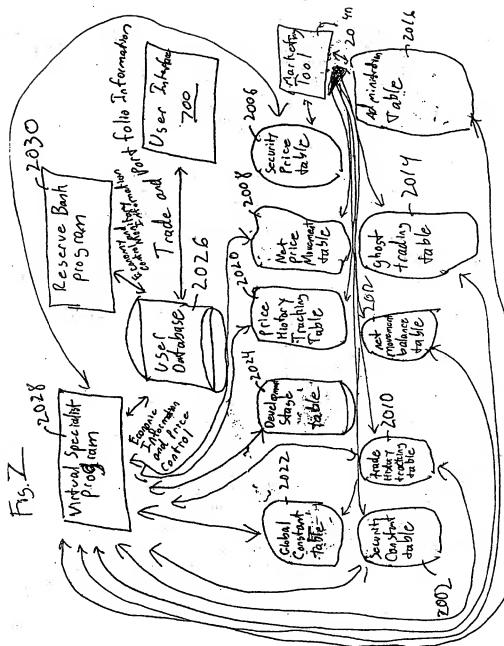 Fig.7
Virtual Specialist
Program
2028
Reserve Bank
program
2030
Economic
Information
and Price
Control
User
Database
2026
Trade and
Portfolio Information
User Interface
700
Global
Constant
table
2022
Development
Stage
table
2024
Price
History
Tracking
Table
2020
Net
price
Movement
table
2008
Security
Price
table
2006
Marketing
Tool
Security
Constant
table
2002
Trade
History
tracking
table
2010
Net
movement
balance
table
2012
Ghost
trading
table
2014
Administration
Table
2016